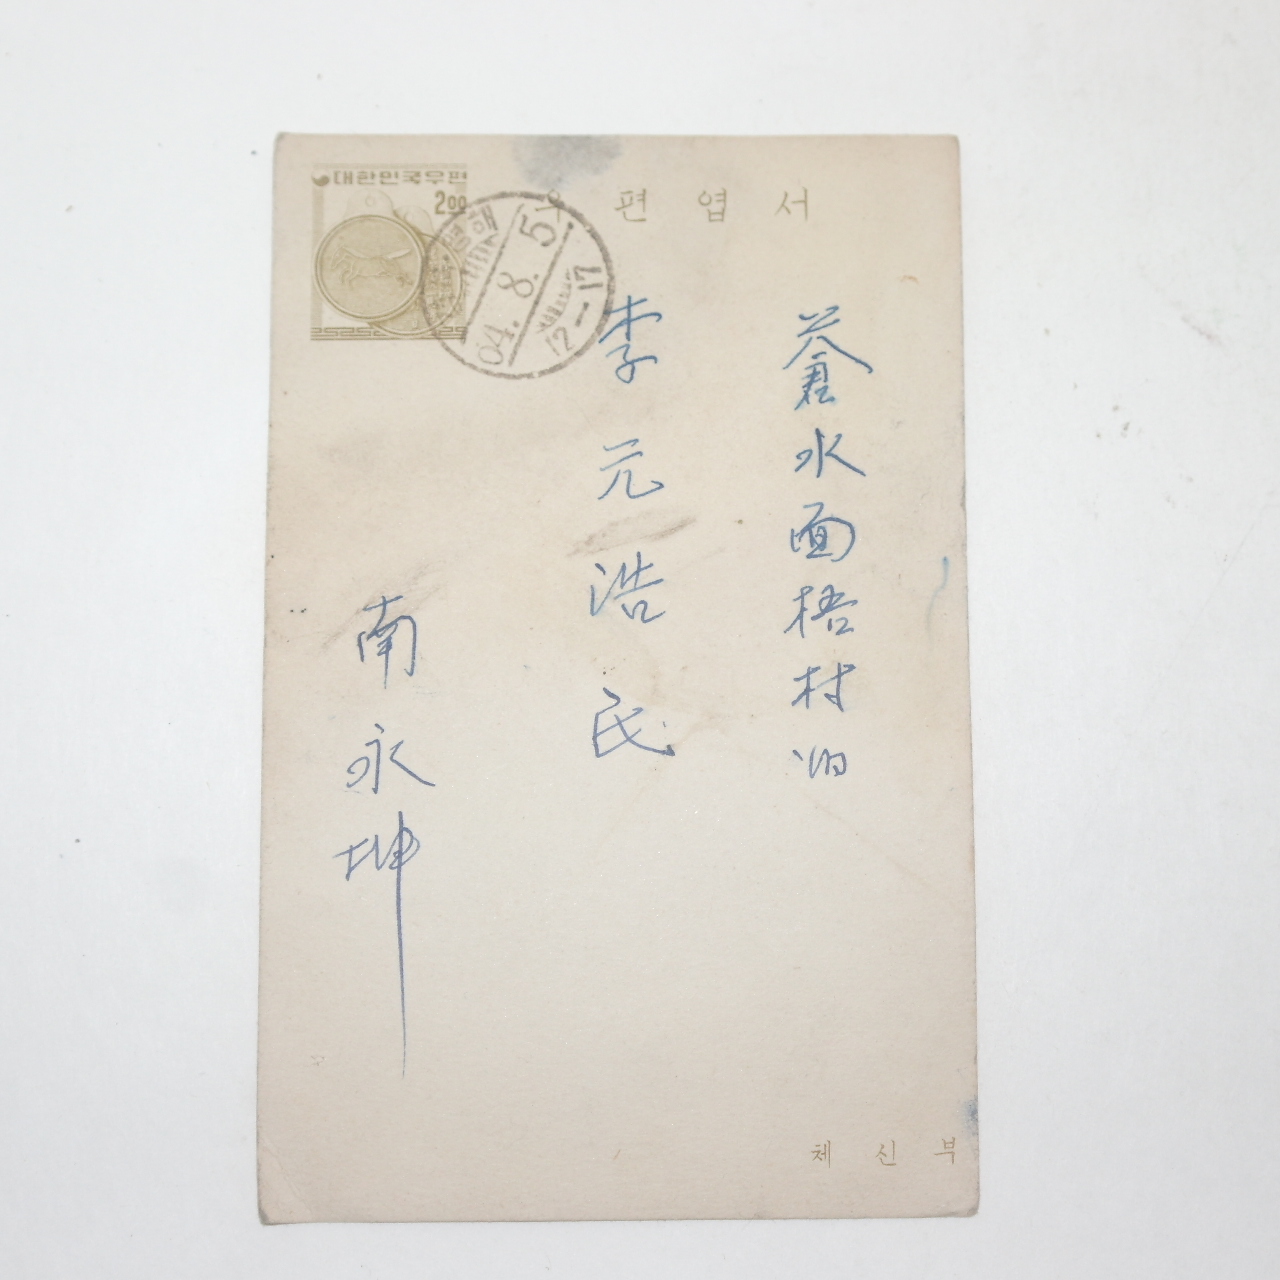 대한민국우편
2.00
우편엽서
영해
64.8.5
12-17
蒼水面梧村洞
李元浩氏
南永坤
체신부